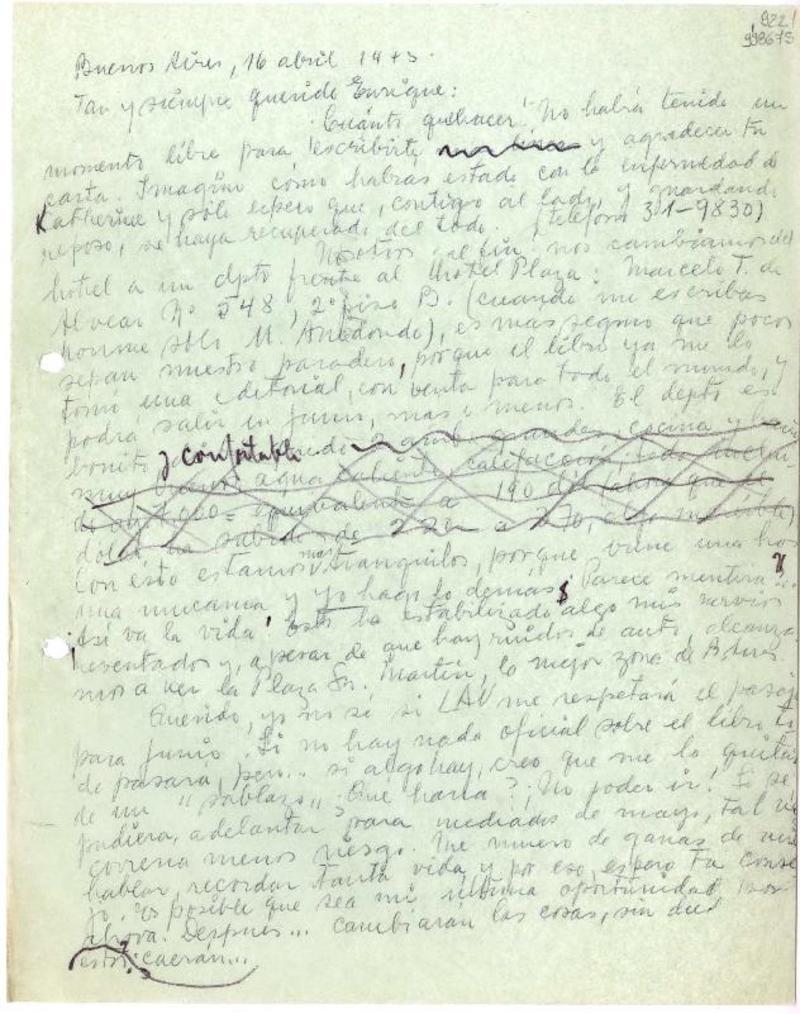 922/
998675
Buenos Aires, 16 abril 1975.
Tan y siempre querido Enrique:
¡Cuánto quehacer! No habrá tenido un
momento libre para escribirte y agradecer tu
carta. Imagino cómo habrás estado con la enfermedad de
Katherine y sólo espero que, contigo al lado, y guardando
reposo, se haya recuperado del todo. (teléfono 31-9830)
Nosotros al fin nos cambiamos del
hotel a un dpto frente al Hotel Plaza: Marcelo T. de
Alvear Nº 548, 2º piso B. (cuando me escribas
ponme sólo M. Arredondo), es mas seguro que pocos
sepan nuestro paradero, porque el libro ya me lo
tomó una editorial, con venta para todo el mundo, y
podrá salir en junio, mas o menos. El depto es
bonito y confortable 2 amb. grandes, cocina y baño
muy agua caliente, calefacción, todo
equivalente a 190 dls ahora que el
dólar ha subido de 220 a 270,
Con ésto estamos mas tranquilos, porque viene una hora
una mucama y yo hago lo demás. Parece mentira
Así va la vida! Esto ha estabilizado algo mis nervios
reventados y, a pesar de que hay ruidos de auto, alcanza
mos a ver la Plaza Sn. Martín, lo mejor zona de B. Aires
Querido, yo no sé si LAN me respetará el pasaje
para junio. Si no hay nada oficial sobre el libro
pasará, pero... si algo hay, creo que me lo quitan
de un "sablazo". Qué haría? ¡No poder ir! Si se
pudiera adelantar para mediados de mayo, tal vez
correría menos riesgo. Me muero de ganas de
hablar, recordar tanta vida y por eso, espero tu conse
jo. Es posible que sea mi última oportunidad
ahora. Después... cambiarán las cosas, sin dud
caerán...